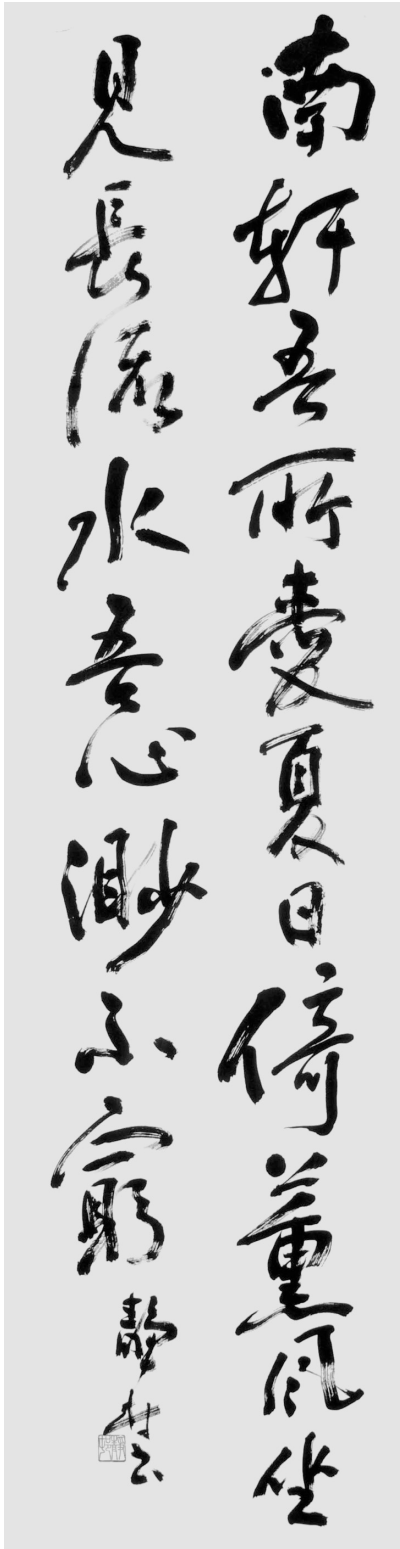 南軒吾所愛夏日倚薫風坐
見長流水吾心渺不窮
靜村書